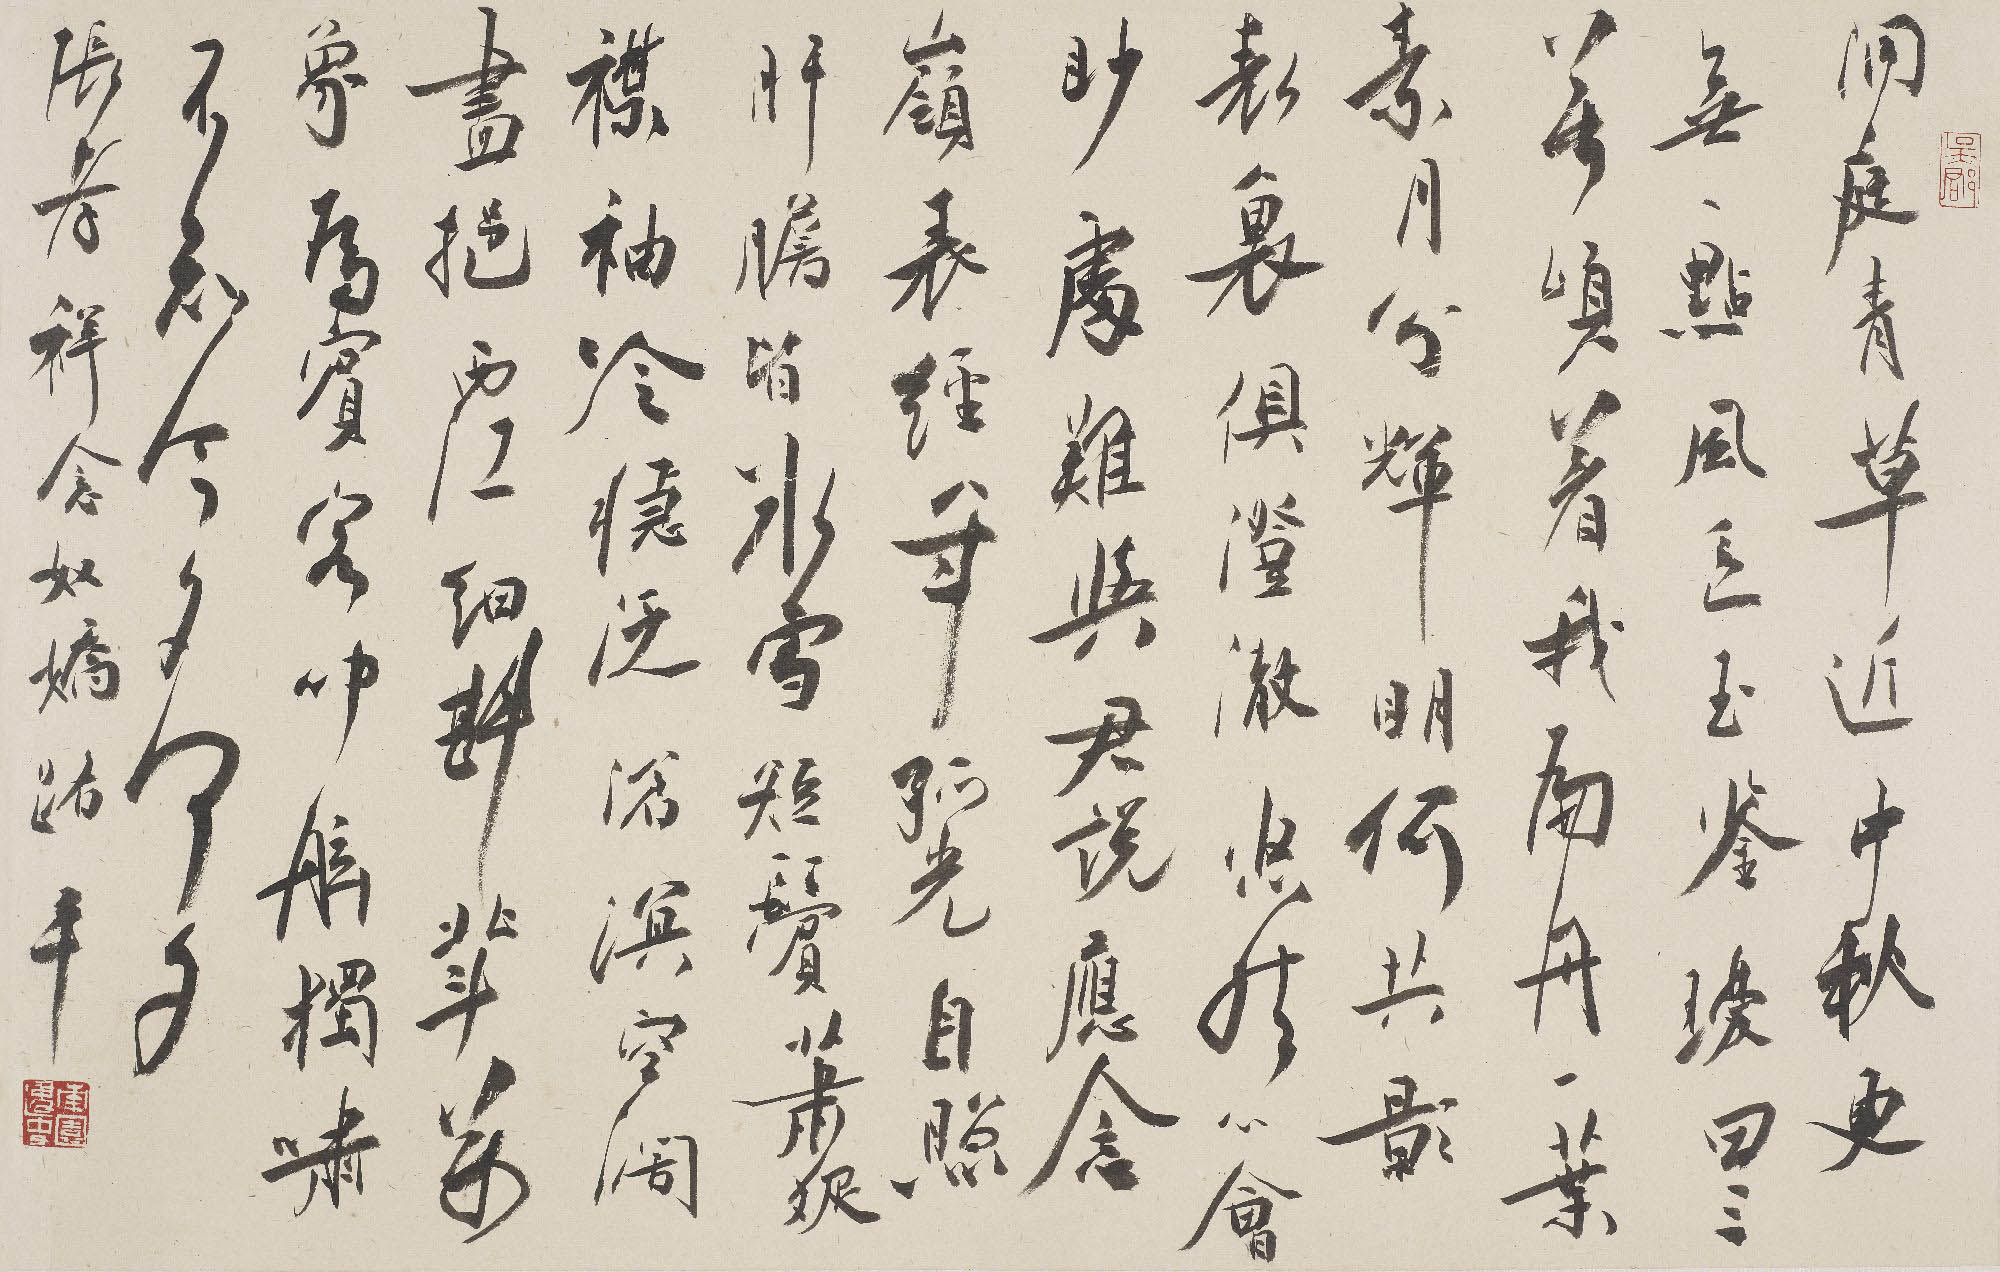 吳郡
洞庭青草近中秋更
無一點風色玉鑒瓊田三
萬頃着我扁舟一葉
素月分輝明河共影
表裏俱澄澈悠然心會
妙處難與君說應念
嶺表經年孤光自照
肝膽皆冰雪短鬢蕭疏
襟袖冷穩泛滄溟空闊
盡挹西江細斟北斗萬
象為賓客叩舷獨嘯
不知今夕何夕
張孝祥念奴嬌